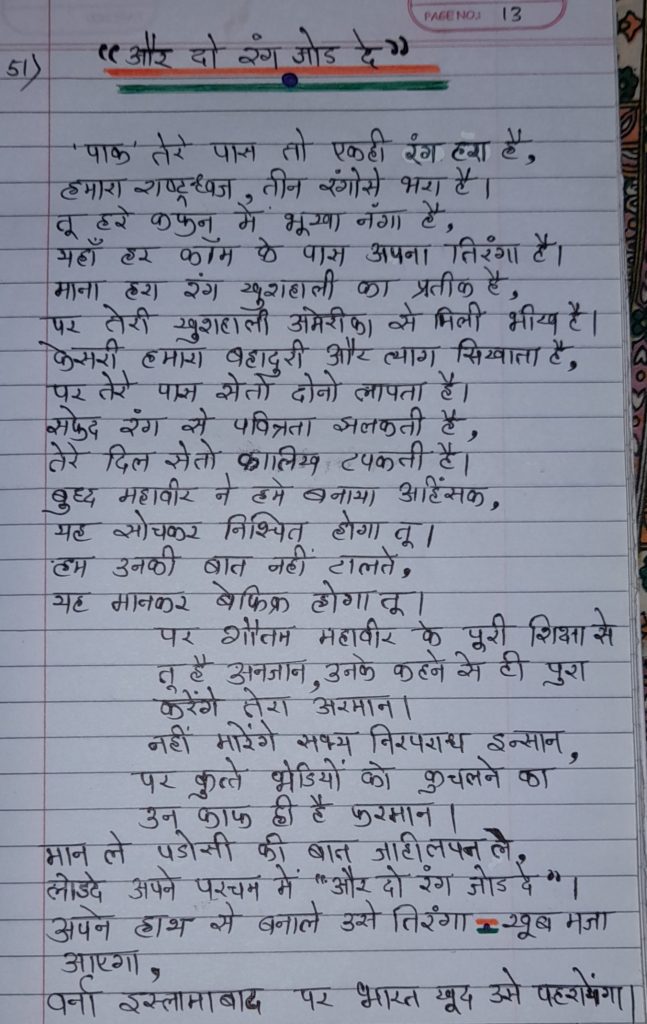 PAGE NO.: 13
51) “और दो रंग जोड दे”
'पाक' तेरे पास तो एकही रंग हरा है,
हमारा राष्ट्रध्वज, तीन रंगोसे भरा है।
तू हरे कफन में भूखा नंगा है,
यहाँ हर कॉम के पास अपना तिरंगा है।
माना हरा रंग खुशहाली का प्रतीक है,
पर तेरी खुशहाली अमेरीका से मिली भीख है।
केसरी हमारा बहादुरी और त्याग सिखाता है,
पर तेरे पास सेतो दोनो लापता है।
सफेद रंग से पवित्रता झलकती है,
तेरे दिल सेतो कालिख टपकती है।
बुध्द महावीर ने हमे बनाया अहिंसक,
यह सोचकर निश्चित होगा तू।
हम उनकी बात नहीं टालते,
यह मानकर बेफिक्र होगा तू।
पर गौतम महावीर के पूरी शिक्षा से
तू है अनजान, उनके कहने से ही पुरा
करेंगे तेरा अरमान।
नहीं मारेंगे सभ्य निरपराध इन्सान,
पर कुत्ते भेडियों को कुचलने का
उन का ही है फरमान।
मान ले पडोसी की बात जाहीलपन
अपने परचम में “और दो रंग जोड दे”।
अपने हाथ से बनाले उसे तिरंगा खूब मजा
आएगा,
वर्ना इस्लामाबाद पर भारत खूद उसे